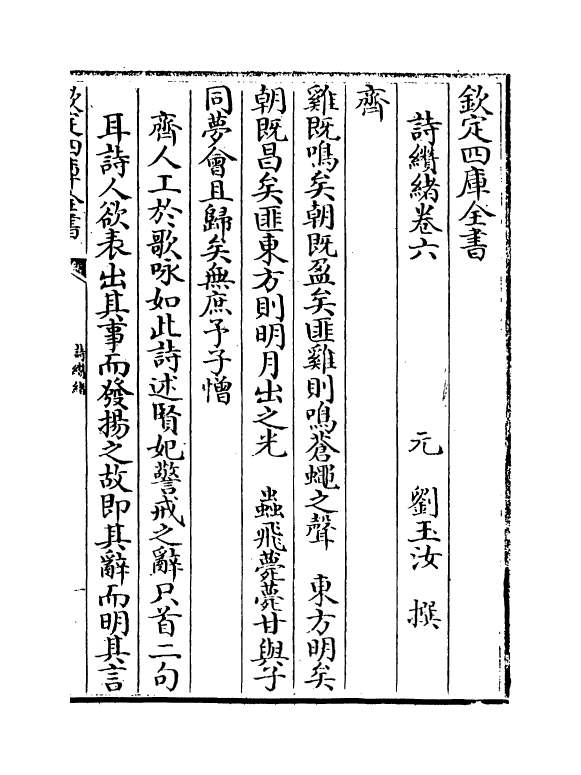 欽定四庫全書
詩纘緒卷六 元 劉玉汝 撰
齊
雞既鳴矣朝既盈矣匪雞則鳴蒼蠅之聲 東方明矣
朝既昌矣匪東方則明月出之光 蟲飛薨薨甘與子
同夢會且歸矣無庶予子憎
齊人工於歌咏如此詩述賢妃警戒之辭只首二句
耳詩人欲表出其事而發揚之故即其辭而明其言
欽定四庫全書
詩纘緒